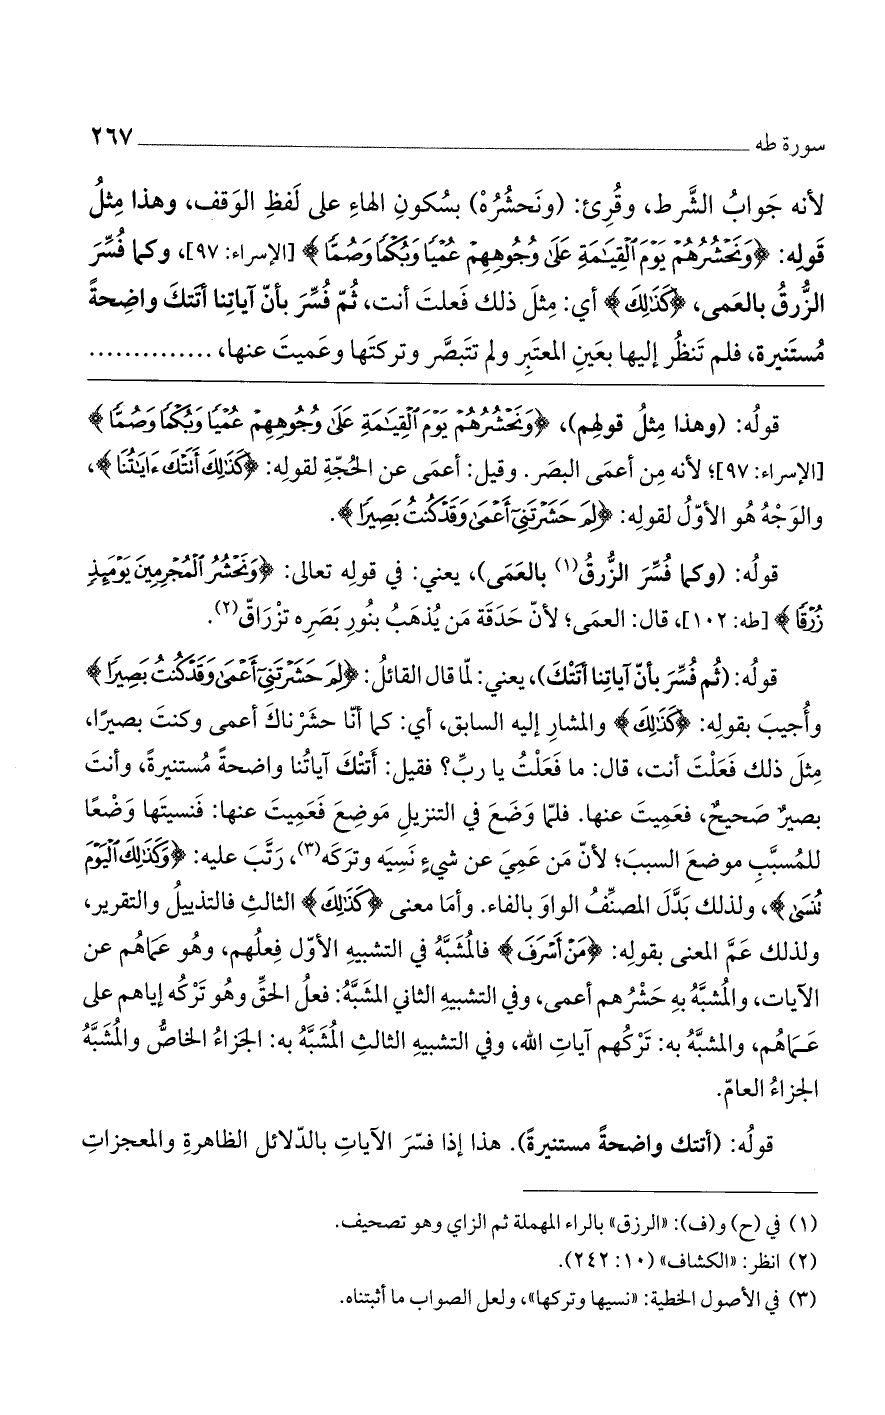 سورة طه ٢٦٧
لأنه جَوابُ الشَّرط، وقُرِئ: (ونَحشُرُهْ) بسُكونِ الهاءِ على لَفظِ الوَقف، وهذا مِثلُ
قَولِه: ﴿وَنَحْشُرُهُمْ يَوْمَ ٱلْقِيَـٰمَةِ عَلَىٰ وُجُوهِهِمْ عُمْيًا وَبُكْمًا وَصُمًّا﴾ [الإسراء: ٩٧]، وكما فُسِّرَ
الزُّرقُ بالعَمى، ﴿كَذَٰلِكَ﴾ أي: مِثلَ ذلك فَعلتَ أنت، ثُمّ فُسِّرَ بأنّ آياتِنا أتَتكَ واضِحةً
مُستَنيرة، فلم تَنظُر إليها بعَينِ المعتَبِر ولم تتَبصَّر وتركتَها وعَميتَ عنها، ..............
قولُه: (وهذا مِثلُ قولِهم)، ﴿وَنَحْشُرُهُمْ يَوْمَ ٱلْقِيَـٰمَةِ عَلَىٰ وُجُوهِهِمْ عُمْيًا وَبُكْمًا وَصُمًّا﴾
[الإسراء: ٩٧]؛ لأنه مِن أعمَى البصَر. وقيل: أعمَى عن الحُجّةِ لقولِه: ﴿كَذَٰلِكَ أَتَتْكَ ءَايَـٰتُنَا﴾،
والوَجْهُ هُو الأوّلُ لقولِه: ﴿لِمَ حَشَرْتَنِىٓ أَعْمَىٰ وَقَدْ كُنتُ بَصِيرًا﴾.
قولُه: (وكما فُسِّرَ الزُّرقُ(١) بالعَمَى)، يعني: في قولِه تعالى: ﴿وَنَحْشُرُ ٱلْمُجْرِمِينَ يَوْمَئِذٍ
زُرْقًا﴾ [طه: ١٠٢]، قال: العمَى؛ لأنّ حَدَقَة مَن يُذهَبُ بنُورِ بَصَرِه تزْرَاقّ(٢).
قولُه: (ثُم فُسِّرَ بأنّ آياتِنا أتَتْكَ)، يعني: لمّا قال القائلُ: ﴿لِمَ حَشَرْتَنِىٓ أَعْمَىٰ وَقَدْ كُنتُ بَصِيرًا﴾
وأُجيبَ بقولِه: ﴿كَذَٰلِكَ﴾ والمشارِ إليه السابق، أي: كما أنّا حشَرْناكَ أعمى وكنتَ بصيرًا،
مِثلَ ذلك فَعَلْتَ أنت، قال: ما فَعَلْتُ يا ربِّ؟ فقيل: أتتْكَ آياتُنا واضحةً مُستنيرةً، وأنتَ
بصيرٌ صَحيحٌ، فعَمِيتَ عنها. فلمّا وَضَعَ في التنزيلِ مَوضِعَ فَعَمِيتَ عنها: فَنسيتَها وَضْعًا
للمُسبَّبِ موضعَ السببَ؛ لأنّ مَن عَمِيَ عن شيءٍ نَسِيَه وتركَه(٣)، رَتَّبَ عليه: ﴿وَكَذَٰلِكَ ٱلْيَوْمَ
تُنسَىٰ﴾، ولذلك بَدَّلَ المصنِّفُ الواوَ بالفاء. وأمّا معنى ﴿كَذَٰلِكَ﴾ الثالثِ فالتذييلُ والتقرير،
ولذلك عَمَّ المعنى بقولِه: ﴿مَنْ أَسْرَفَ﴾ فالمُشبَّهُ في التشبيهِ الأوّل فِعلُهم، وهُو عَماهُم عن
الآيات، والمُشبَّهُ بهِ حَشْرُهم أعمى، وفي التشبيهِ الثاني المشبَّهُ: فعلُ الحقِّ وهُو تَرْكُه إياهم على
عَماهُم، والمشبَّهُ به: تَرْكُهم آياتِ الله، وفي التشبيهِ الثالثِ المُشبَّهُ به: الجَزاءُ الخاصُّ والمُشبَّهُ
الجزاءُ العامّ.
قولُه: (أتتك واضحةً مستنيرةً). هذا إذا فسّرَ الآياتِ بالدّلائل الظاهرةِ والمعجزاتِ
(١) في (ح) و(ف): «الرزق» بالراء المهملة ثم الزاي وهو تصحيف.
(٢) انظر: «الكشاف» (١٠: ٢٤٢).
(٣) في الأصول الخطية: «نسيها وتركها»، ولعل الصواب ما أثبتناه.